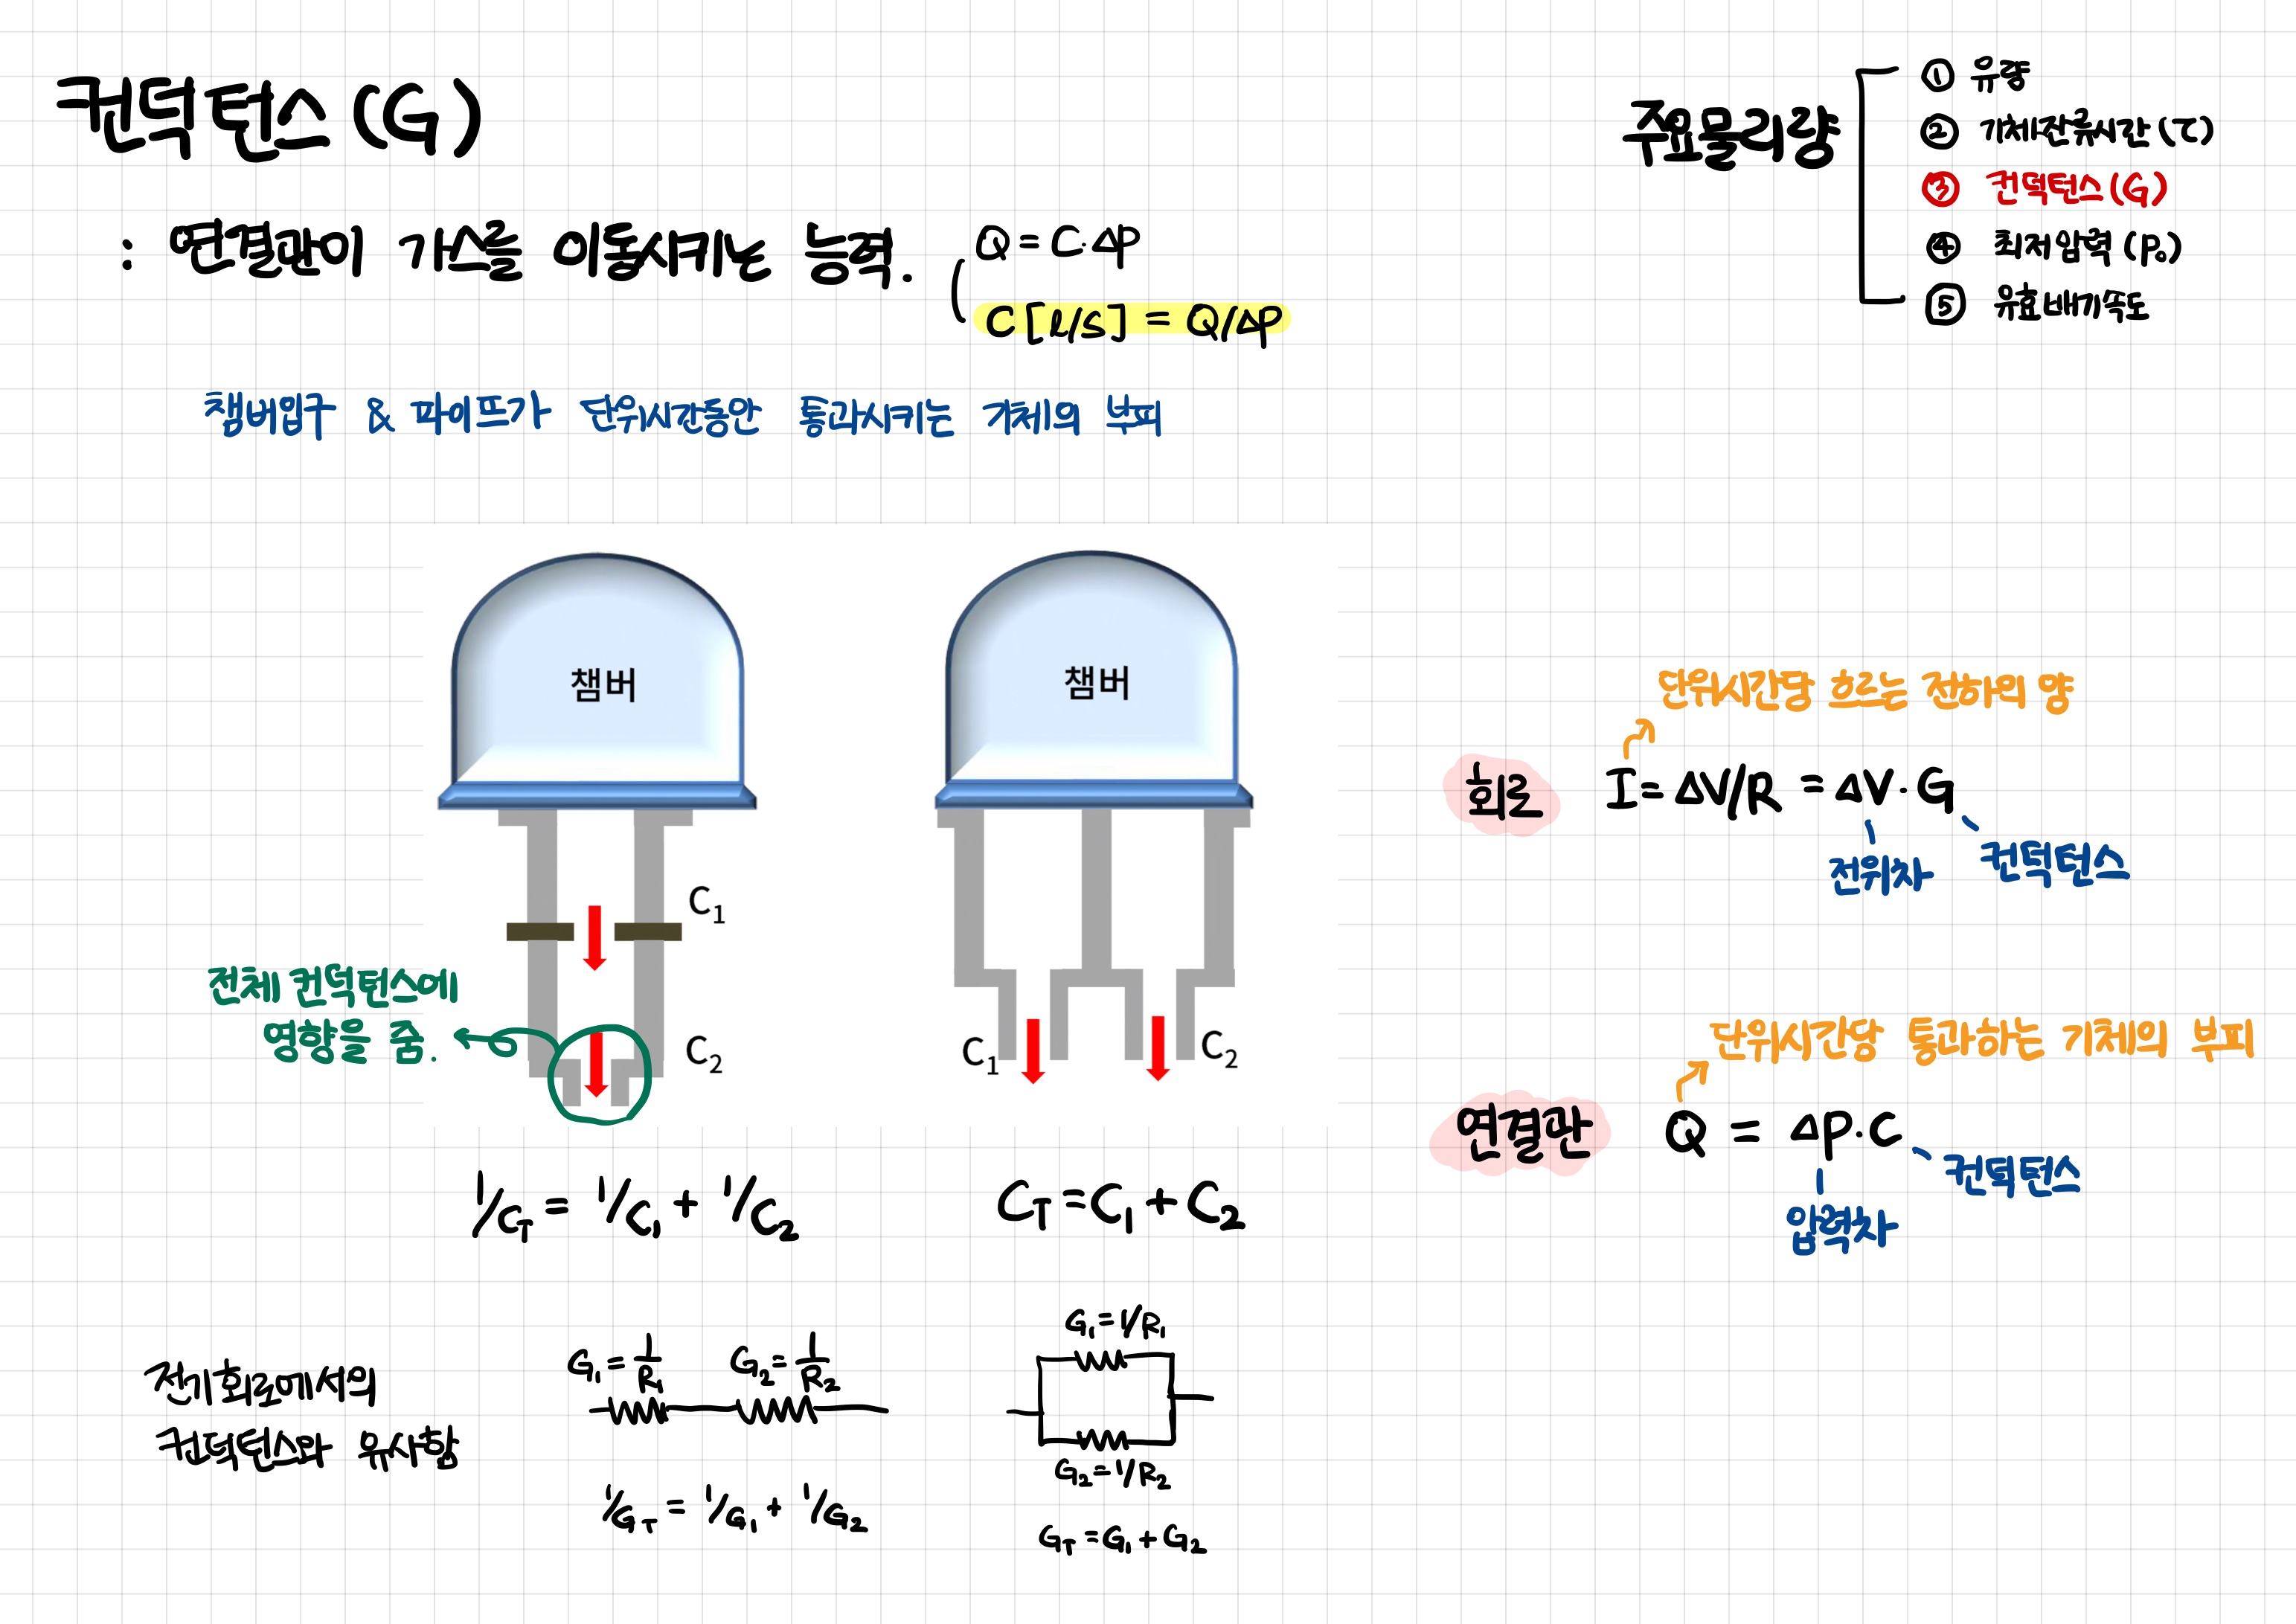 컨덕턴스(G)
: 연결관이 가스를 이동시키는 능력.
Q = C·ΔP
C [l/s] = Q/ΔP
챔버입구 & 파이프가 단위시간동안 통과시키는 기체의 부피
주요물리량
① 유량
② 기체잔류시간(τ)
③ 컨덕턴스(G)
④ 최저압력(P₀)
⑤ 유효배기속도
챔버
C₁
C₂
전체 컨덕턴스에
영향을 줌.
1/C_T = 1/C₁ + 1/C₂
챔버
C₁
C₂
C_T = C₁ + C₂
전기회로에서의
컨덕턴스와 유사함
G₁ = 1/R₁ G₂ = 1/R₂
1/G_T = 1/G₁ + 1/G₂
G₁ = 1/R₁
G₂ = 1/R₂
G_T = G₁ + G₂
단위시간당 흐르는 전하의 양
회로 I = ΔV/R = ΔV·G
전위차 컨덕턴스
단위시간당 통과하는 기체의 부피
연결관 Q = ΔP·C
압력차 컨덕턴스